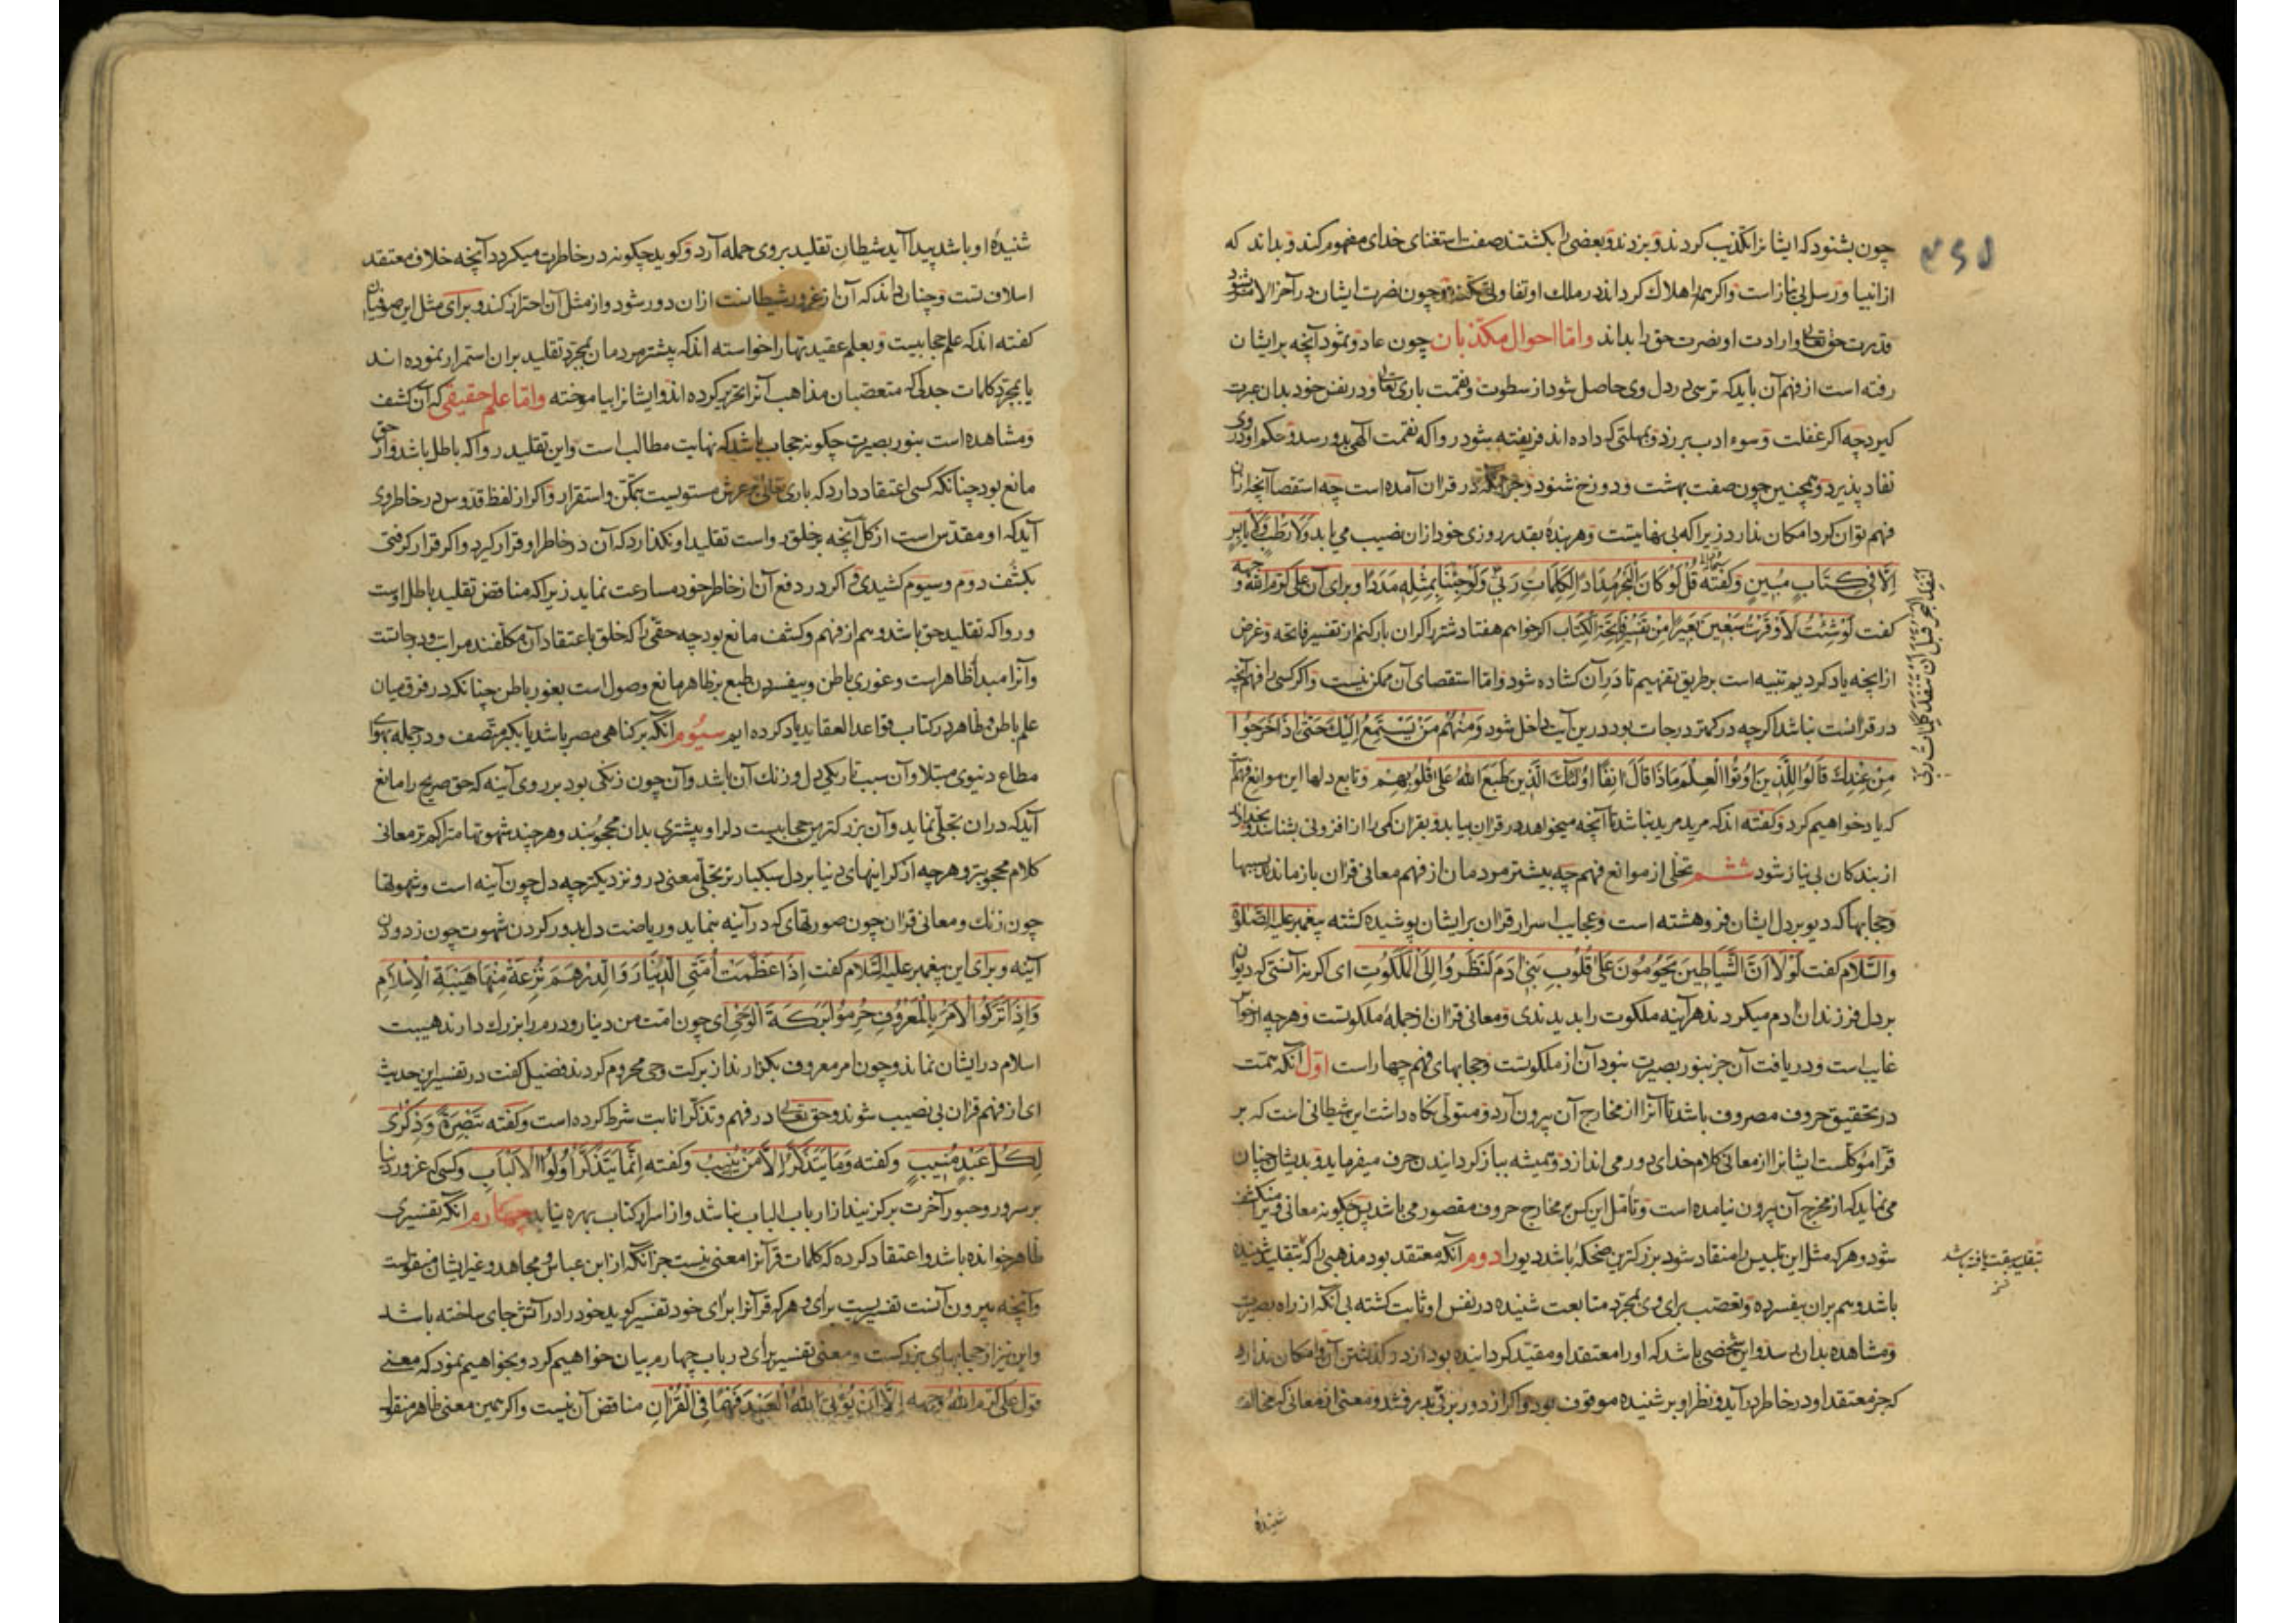 چون بشنود که ایشانرا تکذیب کردند و بزدند و بعضی را بکشتند صفت استغنای خدای مفهوم کند و بداند که
از انبیا و رسل بی نیاز است و اگر همه را هلاک گرداند در ملک او تفاوتی نکند و چون نصرت ایشان در آخر الامر شنود
قدرت حق تعالی و ارادت او نصرت حق را بداند واما احوال مکذبان چون عاد و ثمود آنچه بر ایشان
رفته است از فهم آن باید که ترسی در دل وی حاصل شود از سطوت و نقمت باری تعالی و در نفس خود بدان عبرت
گیرد چه اگر غفلت و سوء ادب برزد و بمهلتی که داده اند فریفته شود روا که نقمت الهی بدو رسد و حکم او در وی
نفاد پذیرد و همچنین چون صفت بهشت و دوزخ شنود و هر چه در قران آمده است چه استقصا آنچه از آن
فهم توان کرد امکان ندارد زیرا که بی نهایتست و هر بنده بقدر روزی خود از ان نصیب می یابد وَلَا رَطْبٍ وَلَا یَابِسٍ
اِلَّا فِی کِتَابٍ مُبِینٍ وگفته قُلْ لَوْ کَانَ الْبَحْرُ مِدَادًا لِکَلِمَاتِ رَبِّی وَلَوْ جِئْنَا بِمِثْلِهِ مَدَدًا و برای آن علی کرم الله وجهه
لَنَفِدَ الْبَحْرُ قَبْلَ اَنْ تَنْفَدَ کَلِمَاتُ رَبِّی
گفت لَوْ شِئْتُ لَاَوْقَرْتُ سَبْعِینَ بَعِیرًا مِنْ تَفْسِیرِ فَاتِحَةِ الْکِتَابِ اگر خواهم هفتاد شتر را گران بار کنم از تفسیر فاتحه و غرض
از انچه یاد کردیم تنبیه است بر طریق تفهیم تا در آن گشاده شود واما استقصای آن ممکن نیست و اگر کسی را فهم آنچه
در قرانست نباشد اگر چه در کمتر درجات بود درین آیت داخل شود وَمِنْهُمْ مَنْ یَسْتَمِعُ اِلَیْکَ حَتَّی اِذَا خَرَجُوا
مِنْ عِنْدِکَ قَالُوا لِلَّذِینَ اُوتُوا الْعِلْمَ مَاذَا قَالَ آنِفًا اُولٰئِکَ الَّذِینَ طَبَعَ اللهُ عَلَی قُلُوبِهِمْ و تابع دلها این موانع فهم
که یاد خواهیم کرد وگفته اند که مرید مرید نباشد تا آنچه میخواهد در قران بیابد و بقران کمی را از افزونی بشناسد و بخداوند
از بندگان بی نیاز شود ششم تخلی از موانع فهم چه بیشتر مردمان از فهم معانی قران باز ماندند بسببها
وحجابها که دیو بر دل ایشان فرو هشته است و عجایب اسرار قران بر ایشان پوشیده گشته پیغمبر علیه الصلوة
والسلام گفت لَوْلَا اَنَّ الشَّیَاطِینَ یَحُومُونَ عَلَی قُلُوبِ بَنِی آدَمَ لَنَظَرُوا اِلَی الْمَلَکُوتِ ای گر نه آنستی که دیوان
بر دل فرزندان آدم میگردند هر آینه ملکوت را بدیدندی و معانی قران از جمله ملکوتست و هر چه از حواس
غایب است و دریافت آن جز بنور بصیرت نبود آن از ملکوتست و حجابهای فهم چهار است اول آنکه همت
در تحقیق حروف مصروف باشد تا آنرا از مخارج آن بیرون آرد و متولی نگاه داشت این شیطانی است که بر
قرا موکلست ایشانرا از معانی کلام خدای دور می اندازد و همیشه بباز گردانیدن حرف میفرماید و بدیشان چنان
می نماید که از مخرج آن بیرون نیامده است و تأمل این کس بر مخارج حروف مقصور می باشد پس چگونه معانی ویرا منکشف
شود و هر که مثل این تلبیس را منقاد شود بزرگترین ضحکه باشد دیو را دوم آنکه معتقد بود مذهبی را که بتقلید شنیده
باشد و هم بران بیفسرده و تعصب برای وی بمجرد متابعت شنیده در نفس او ثابت گشته بی آنکه از راه بصیرت
ومشاهده بدان رسد و این شخصی باشد که او را معتقد او مقید گردانیده بود از در گذشتن آن و امکان ندارد
که جز معتقد او در خاطر در آید و نظر او بر شنیده موقوف بود و اگر از دور برقی بدرفشد و معنی از معانی که مخالف
شنیده
شنیده او باشد پیدا آید شیطان تقلید بر وی حمله آرد و گوید چگونه در خاطرت میگردد آنچه خلاف معتقد
اسلاف تست و چنان داند که آن از غرور شیطانست از ان دور شود و از مثل آن احتراز کند و برای مثل این صوفیان
گفته اند که علم حجابیست و بعلم عقیدتها را خواسته اند که بیشتر مردمان بمجرد تقلید بران استمرار نموده اند
یا بمجرد کلمات جدلی که متعصبان مذاهب آنرا تحریر کرده اند و ایشانرا بیاموخته واما علم حقیقی که آن کشف
ومشاهده است بنور بصیرت چگونه حجاب باشد که نهایت مطالب است واین تقلید روا که باطل باشد و از حق
مانع بود چنانکه کسی اعتقاد دارد که باری تعالی بر عرش مستویست بتمکن و استقرار و اگر از لفظ قدوس در خاطر وی
آید که او مقدس است از کل آنچه بر خلق رواست تقلید او نگذارد که آن در خاطر او قرار گیرد و اگر قرار گرفتی
بکشف دوم وسیوم کشیدی و اگر در دفع آن از خاطر خود مسارعت نماید زیرا که مناقض تقلید باطل اوست
وروا که تقلید حق باشد وهم از فهم و کشف مانع بود چه حقی را که خلق باعتقاد آن مکلفند مراتب و درجاتست
وآنرا مبدأ ظاهر است وغوری باطن وبیفسردن طبع بر ظاهر مانع وصول است بغور باطن چنانکه در فرق میان
علم باطن و ظاهر در کتاب قواعد العقاید یاد کرده ایم سیوم آنکه بر گناهی مصر باشد یا بکبر متصف ودر جمله بهوای
مطاع دنیوی مبتلا و آن سبب تاریکی دل و زنگ آن باشد و آن چون زنگی بود بر روی آینه که حق صریح را مانع
آید که در ان تجلی نماید و آن بزرگترین حجابیست دلرا و بیشتری بدان محجوبند و هر چند شهوتها متراکم تر معانی
کلام محجوبتر و هر چه از گرانیهای دنیا بر دل سبکبارتر تجلی معنی در و نزدیکتر چه دل چون آینه است و شهوتها
چون زنگ و معانی قران چون صورتهای که در آینه بنماید و ریاضت دل بدور کردن شهوت چون زدودن
آینه وبرای این پیغمبر علیه السلام گفت اِذَا عَظَّمَتْ اُمَّتِی الدِّینَارَ وَالدِّرْهَمَ نُزِعَ مِنْهَا هَیْبَةُ الْاِسْلَامِ
وَاِذَا تَرَکُوا الْاَمْرَ بِالْمَعْرُوفِ حُرِمُوا بَرَکَةَ الْوَحْیِ ای چون امت من دینار و درم را بزرگ دارند هیبت
اسلام در ایشان نماند وچون امر معروف بگذارند از برکت وحی محروم گردند فضیل گفت در تفسیر این حدیث
ای از فهم قران بی نصیب شوند و حق تعالی در فهم و تذکر انابت شرط کرده است وگفته تَبْصِرَةً وَذِکْرَی
لِکُلِّ عَبْدٍ مُنِیبٍ وگفته وَمَا یَتَذَکَّرُ اِلَّا مَنْ یُنِیبُ وگفته اِنَّمَا یَتَذَکَّرُ اُولُوا الْاَلْبَابِ وکسی که غرور دنیا
بر سرور و حبور آخرت برگزیند از ارباب الباب نباشد و از اسرار کتاب بهره نیابد چهارم آنکه تفسیری
ظاهر خوانده باشد و اعتقاد کرده که کلمات قرآنرا معنی نیست جز آنکه از ابن عباس و مجاهد و غیر ایشان منقولست
وآنچه بیرون آنست تفسیرست برای و هر که قرآنرا برای خود تفسیر گوید خود را در آتش جای ساخته باشد
واین نیز از حجابهای بزرگست ومعنی تفسیر برای در باب چهارم بیان خواهیم کرد و بخواهیم نمود که معنی
قول علی کرم الله وجهه اِلَّا اَنْ یُؤْتِیَ اللهُ الْعَبْدَ فَهْمًا فِی الْقُرْآنِ مناقض آن نیست و اگر همین معنی ظاهر منقول